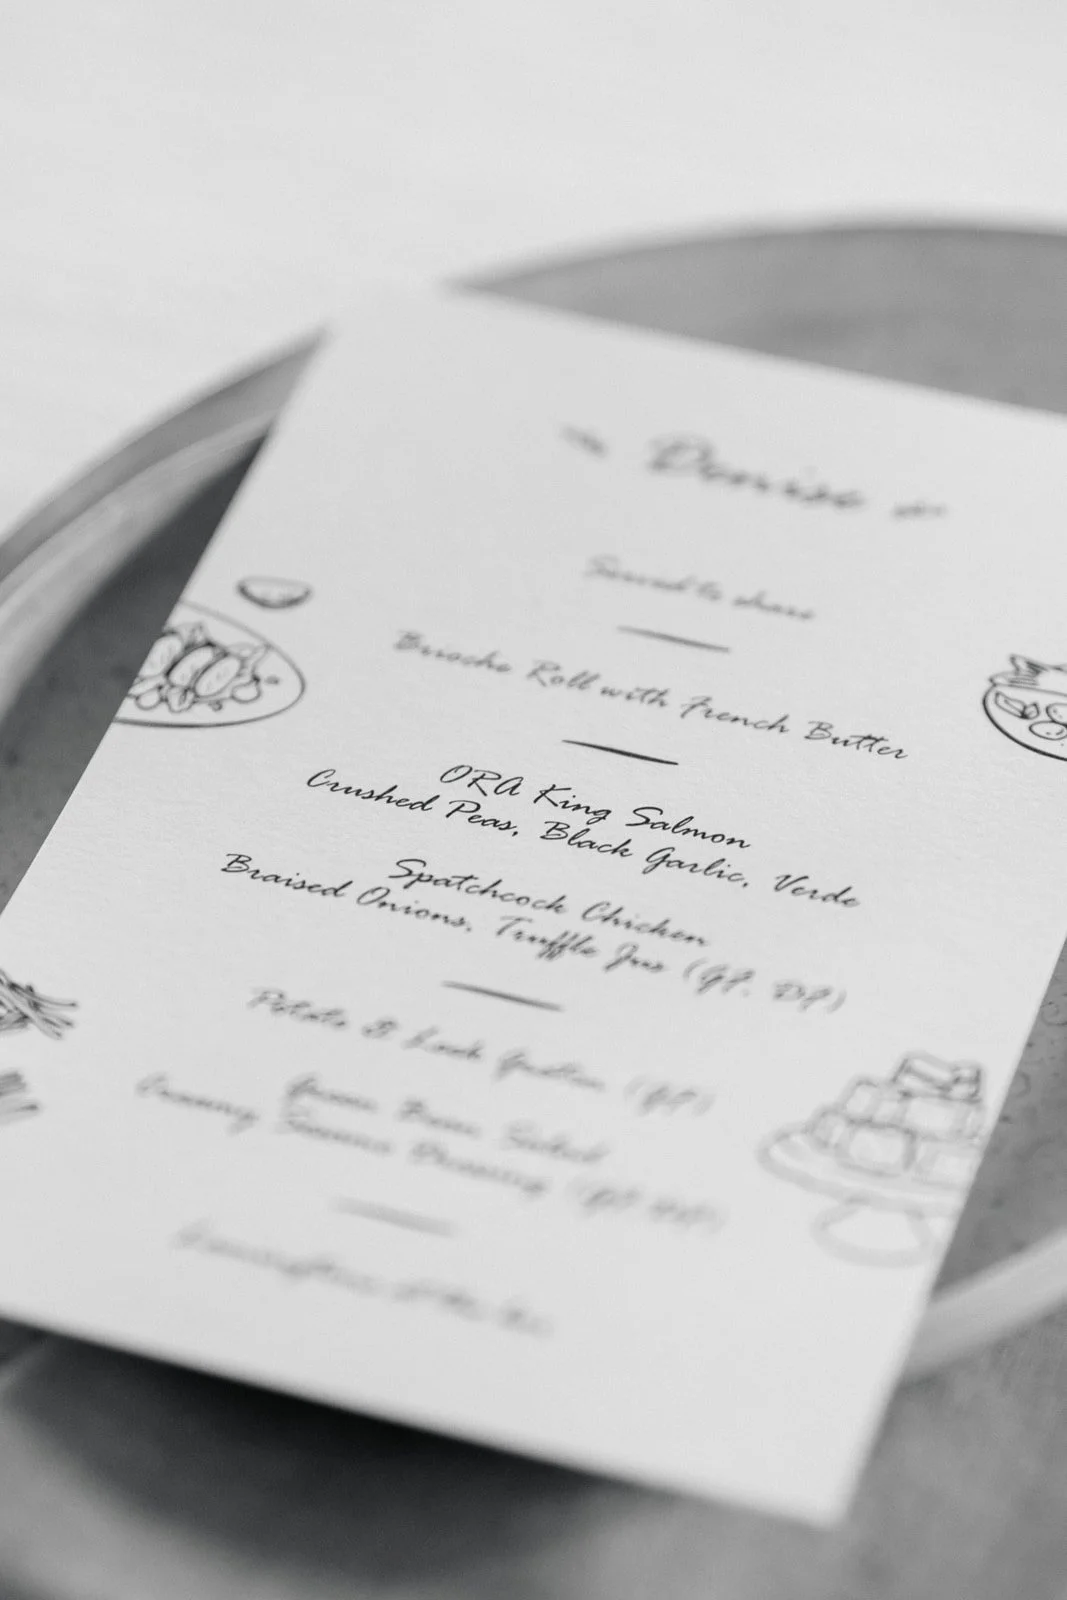 Denise
Served to share
Brioche Roll with French Butter
ORA King Salmon
Crushed Peas, Black Garlic, Verde
Spatchcock Chicken
Braised Onions, Truffle Jus (GF, DF)
Potato & Leek Gratin (GF)
Green Bean Salad
Creamy Dressing (GF